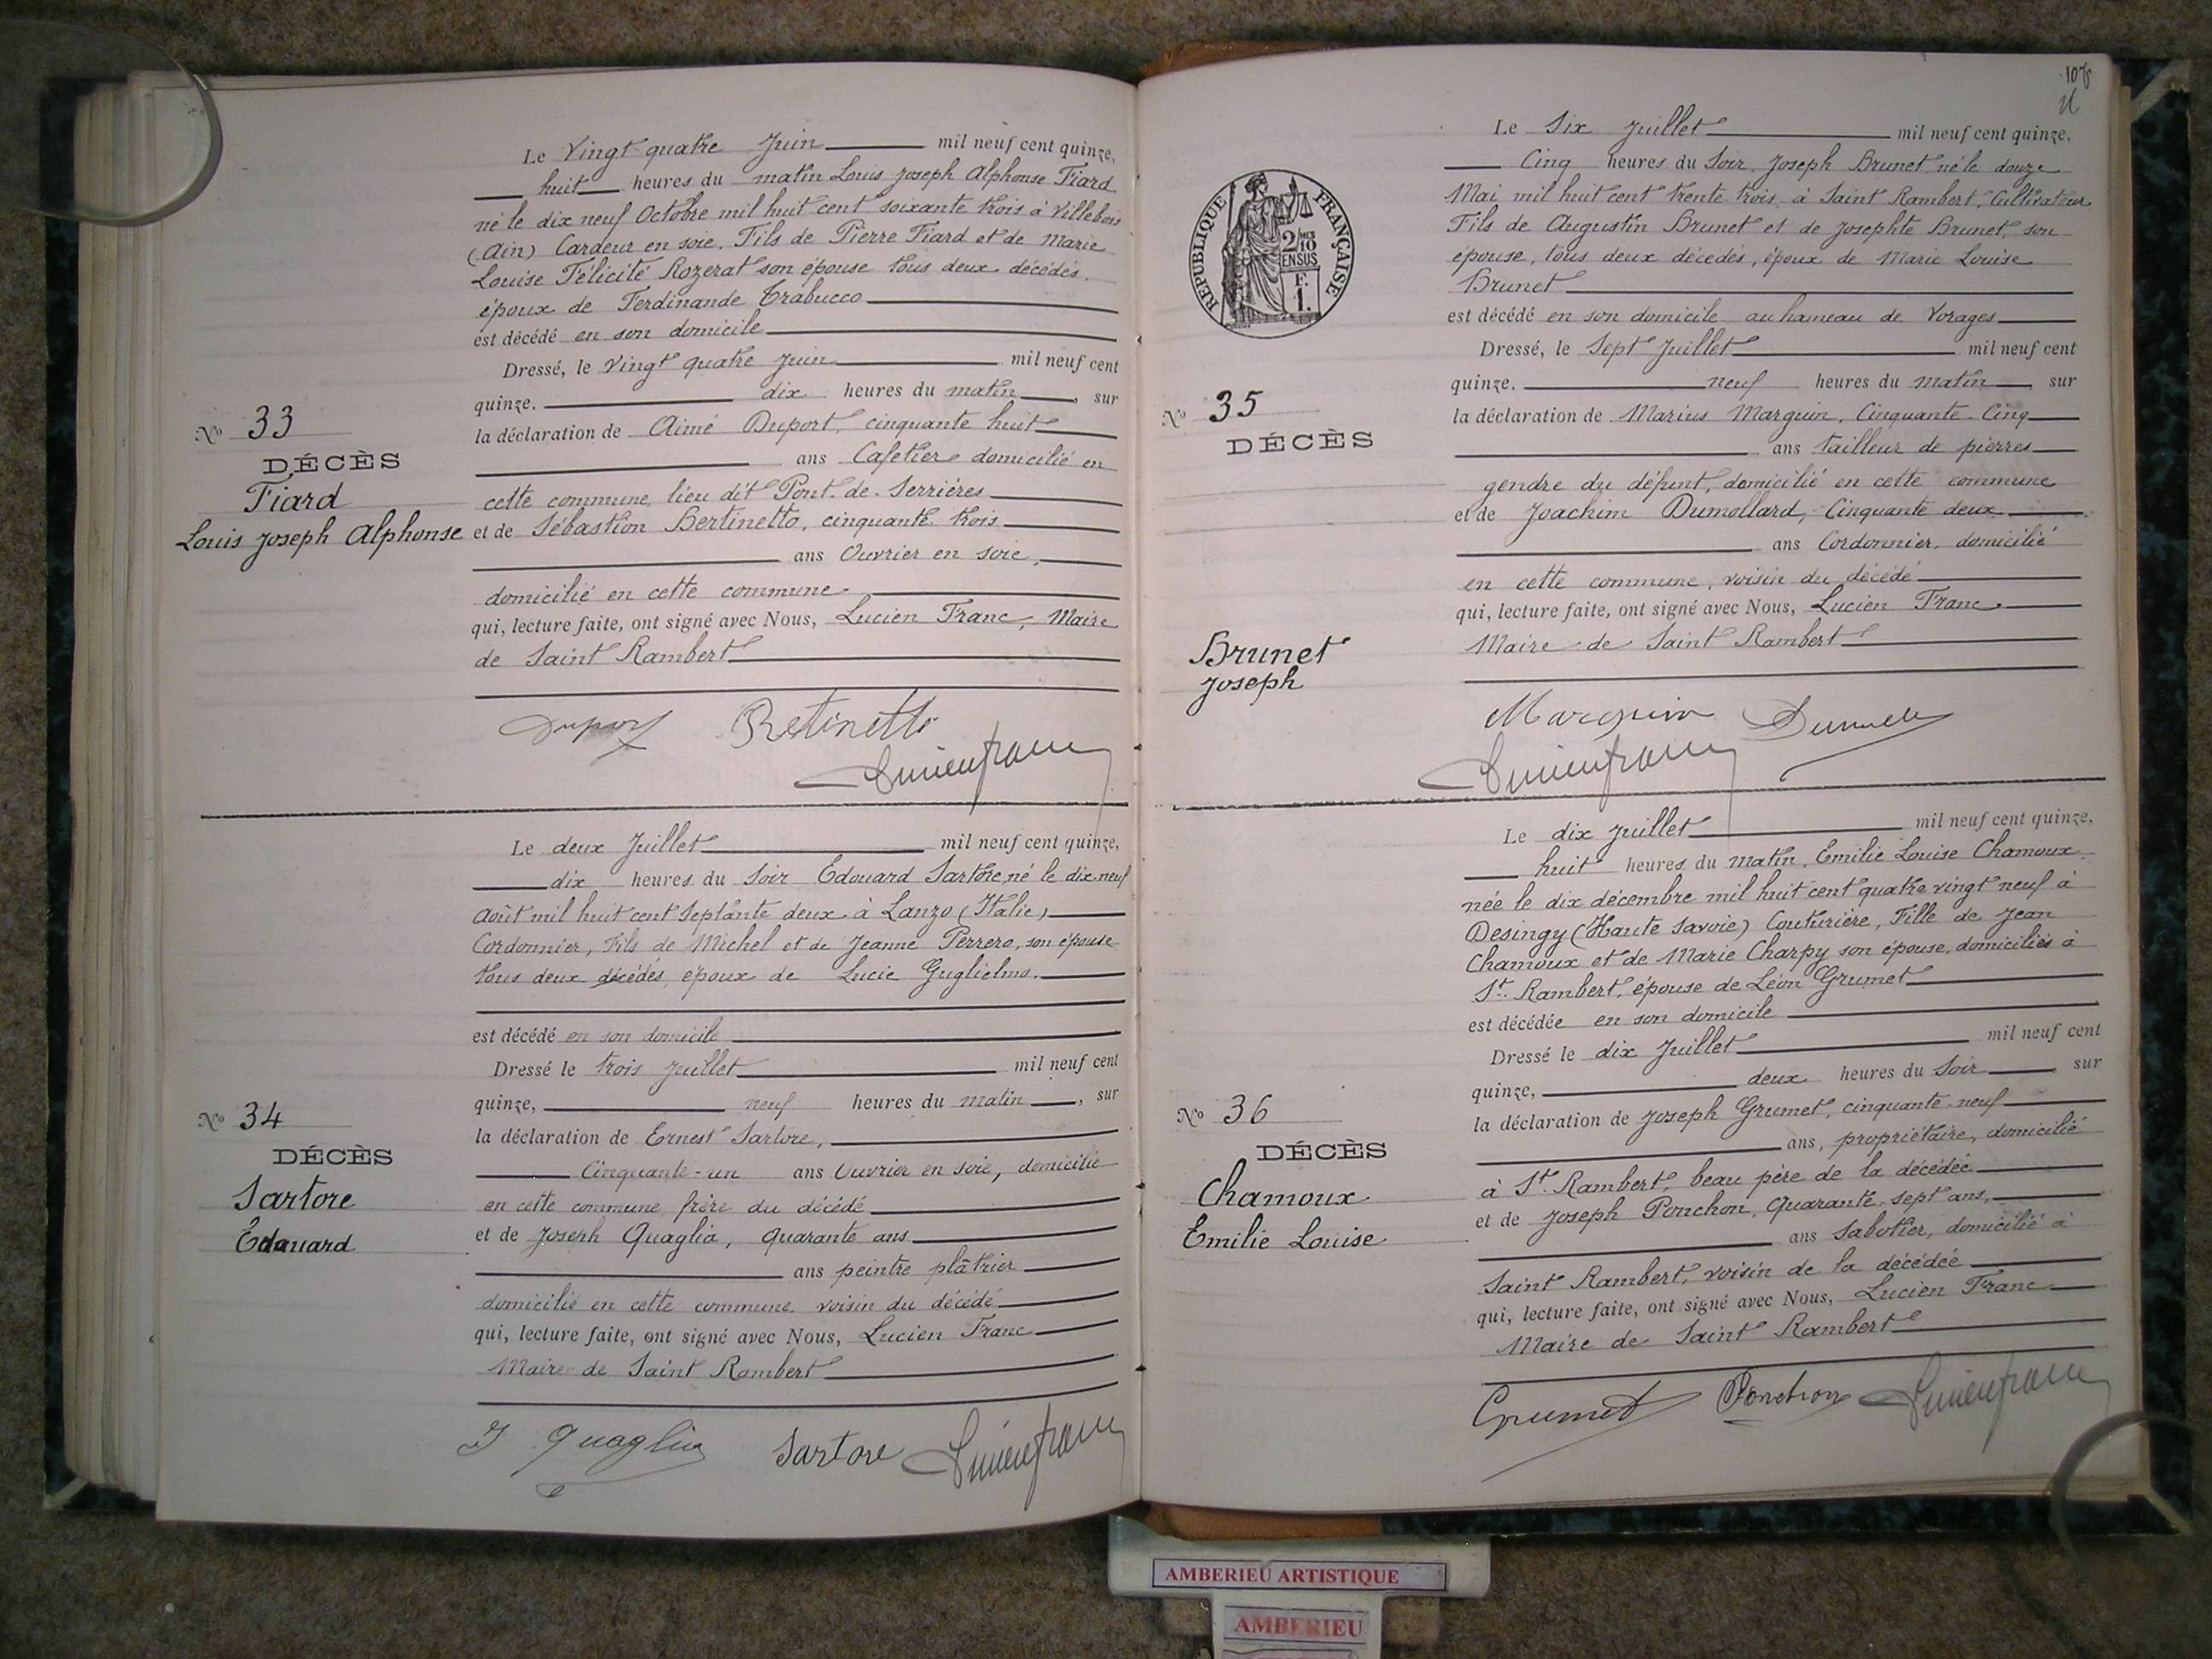 Le Vingt quatre Juin mil neuf cent quinze,
huit heures du matin Louis Joseph Alphonse Fiard
né le dix neuf Octobre mil huit cent soixante trois à Villebois
(Ain) Cardeur en soie. Fils de Pierre Fiard et de Marie
Louise Félicité Rozerat son épouse tous deux décédés.
époux de Ferdinande Trabucco
est décédé en son domicile
Dressé, le vingt quatre Juin mil neuf cent
quinze. dix heures du matin, sur
la déclaration de Aimé Duport, cinquante huit
ans Cafetier domicilié en
cette commune, lieu dit Pont-de-Serrières
et de Sébastien Bertinetto, cinquante trois
ans Ouvrier en soie,
domicilié en cette commune
qui, lecture faite, ont signé avec Nous, Lucien Franc, Maire
de Saint Rambert
No 33
DÉCÈS
Fiard
Louis Joseph Alphonse
Duport Betinetto
Lucien franc
Le deux Juillet mil neuf cent quinze,
dix heures du Soir Edouard Sartore, né le dix-neuf
août mil huit cent septante deux à Lanzo (Italie)
Cordonnier, Fils de Michel et de Jeanne Perrero, son épouse
tous deux décédés, époux de Lucie Guglielmo.
est décédé en son domicile
Dressé le trois Juillet mil neuf cent
quinze, neuf heures du matin, sur
la déclaration de Ernest Sartore,
Cinquante-un ans Ouvrier en soie, domicilié
en cette commune, frère du décédé
et de Joseph Quaglia, quarante ans
ans peintre plâtrier
domicilié en cette commune, voisin du décédé
qui, lecture faite, ont signé avec Nous, Lucien Franc
Maire de Saint Rambert
No 34
DÉCÈS
Sartore
Edouard
J Quaglia Sartore Lucien franc
Le Six Juillet mil neuf cent quinze,
Cinq heures du Soir, Joseph Brunet, né le douze
Mai mil huit cent trente trois, à Saint Rambert, Cultivateur
Fils de Augustin Brunet et de Josephte Brunet, son
épouse, tous deux décédés, époux de Marie Louise
Brunet
est décédé en son domicile au hameau de Vorages
Dressé, le Sept Juillet mil neuf cent
quinze. neuf heures du matin, sur
la déclaration de Marius Marguin, Cinquante-Cinq
ans tailleur de pierres
gendre du défunt, domicilié en cette commune
et de Joachim Dumollard, Cinquante deux
ans Cordonnier, domicilié
en cette commune, voisin du décédé
qui, lecture faite, ont signé avec Nous, Lucien Franc,
Maire de Saint Rambert
REPUBLIQUE FRANÇAISE
2/10 MES
EN SUS
F.
1.
No 35
DÉCÈS
Brunet
Joseph
Marguin
Lucien franc
Le dix Juillet mil neuf cent quinze,
huit heures du matin, Emilie Louise Chamoux,
née le dix décembre mil huit cent quatre vingt neuf à
Desingy (Haute Savoie) Couturière, Fille de Jean
Chamoux et de Marie Charpy son épouse, domiciliés à
St. Rambert, épouse de Léon Grumet
est décédée en son domicile
Dressé le dix Juillet mil neuf cent
quinze, deux heures du Soir, sur
la déclaration de Joseph Grumet, cinquante-neuf
ans, propriétaire, domicilié
à St. Rambert, beau père de la décédée
et de Joseph Ponchon, Quarante-sept ans,
ans Sabotier, domicilié à
Saint Rambert, voisin de la décédée
qui, lecture faite, ont signé avec Nous, Lucien Franc
Maire de Saint Rambert
No 36
DÉCÈS
Chamoux
Emilie Louise
Grumet Ponchon Lucien franc
AMBERIEU ARTISTIQUE
AMBERIEU